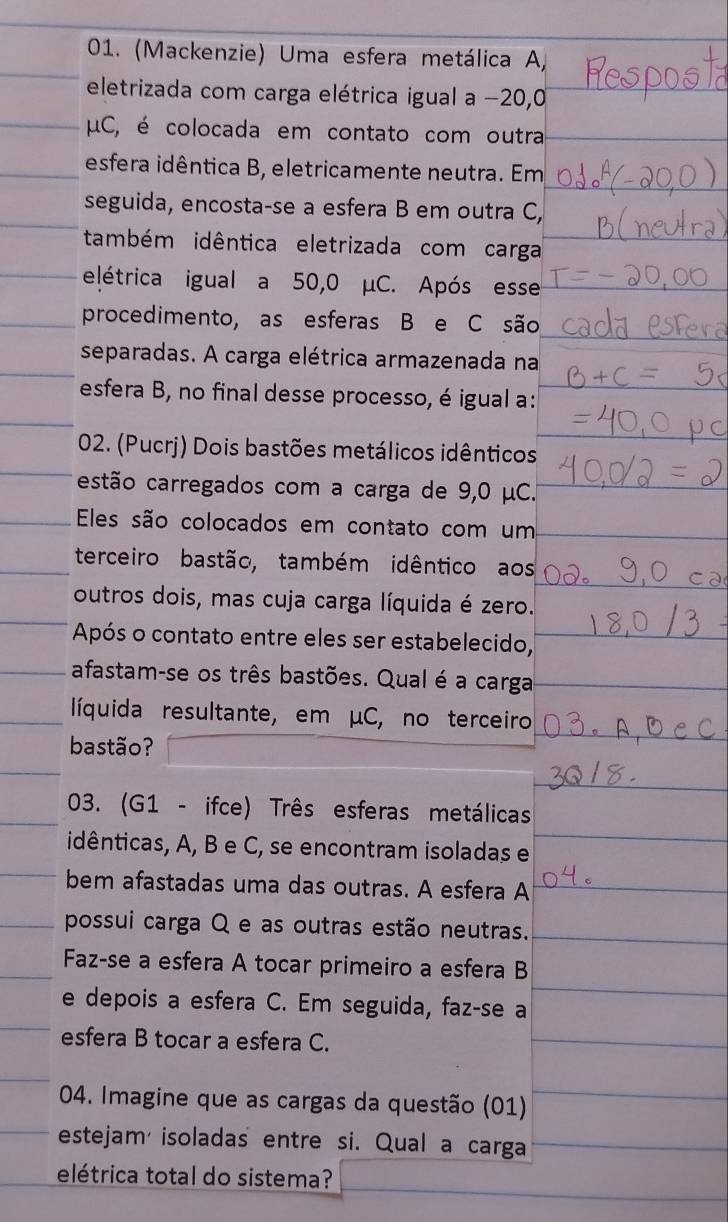 01. (Mackenzie) Uma esfera metálica A,
eletrizada com carga elétrica igual a −20,0
μC, é colocada em contato com outra
esfera idêntica B, eletricamente neutra. Em
seguida, encosta-se a esfera B em outra C,
também idêntica eletrizada com carga
elétrica igual a 50,0 μC. Após esse
procedimento, as esferas B e C são
separadas. A carga elétrica armazenada na
esfera B, no final desse processo, é igual a:
02. (Pucrj) Dois bastões metálicos idênticos
estão carregados com a carga de 9,0 μC.
Eles são colocados em contato com um
terceiro bastão, também idêntico aos
outros dois, mas cuja carga líquida é zero.
Após o contato entre eles ser estabelecido,
afastam-se os três bastões. Qual é a carga
líquida resultante, em μC, no terceiro
bastão?
03. (G1 - ifce) Três esferas metálicas
idênticas, A, B e C, se encontram isoladas e
bem afastadas uma das outras. A esfera A
possui carga Q e as outras estão neutras.
Faz-se a esfera A tocar primeiro a esfera B
e depois a esfera C. Em seguida, faz-se a
esfera B tocar a esfera C.
04. Imagine que as cargas da questão (01)
estejam isoladas entre si. Qual a carga
elétrica total do sistema?
Resposta
01. A(-20,0)
B(neutra)
T=-20,00
cada esfera
B+C= 50
=40,0 μC
40,0/2=2
02. 9,0
18,0/3=
03. A, B e C
3Q/8.
04.